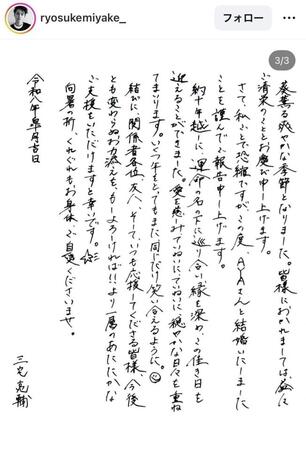 ryosukemiyake_
フォロー
3/3
葵薫る爽やかな季節となりました。皆様におかれましては、益々
ご清栄のこととお慶び申し上げます。
さて、私ごとで恐縮ですが、この度、AYAさんと結婚いたしました
ことを謹んでご報告申し上げます。
約十年越しに、運命の名の下に巡り合い、縁を深め、この佳き日を
迎えることができました。愛を慈みていねいに、ていねいに穏やかな日々を重ね
てまいります。いくつ年をとってもまた同じだけ笑い合えるように。
結びに、関係者各位、友人、そしていつも応援してくださる皆様、今後
とも変わらぬお力添えを、もしよろしければ!!より一層のあたたかな
ご支援をいただけますと幸いです。
向暑の折、くれぐれもお身体ご自愛くださいませ。
令和八年皐月吉日
三宅亮輔